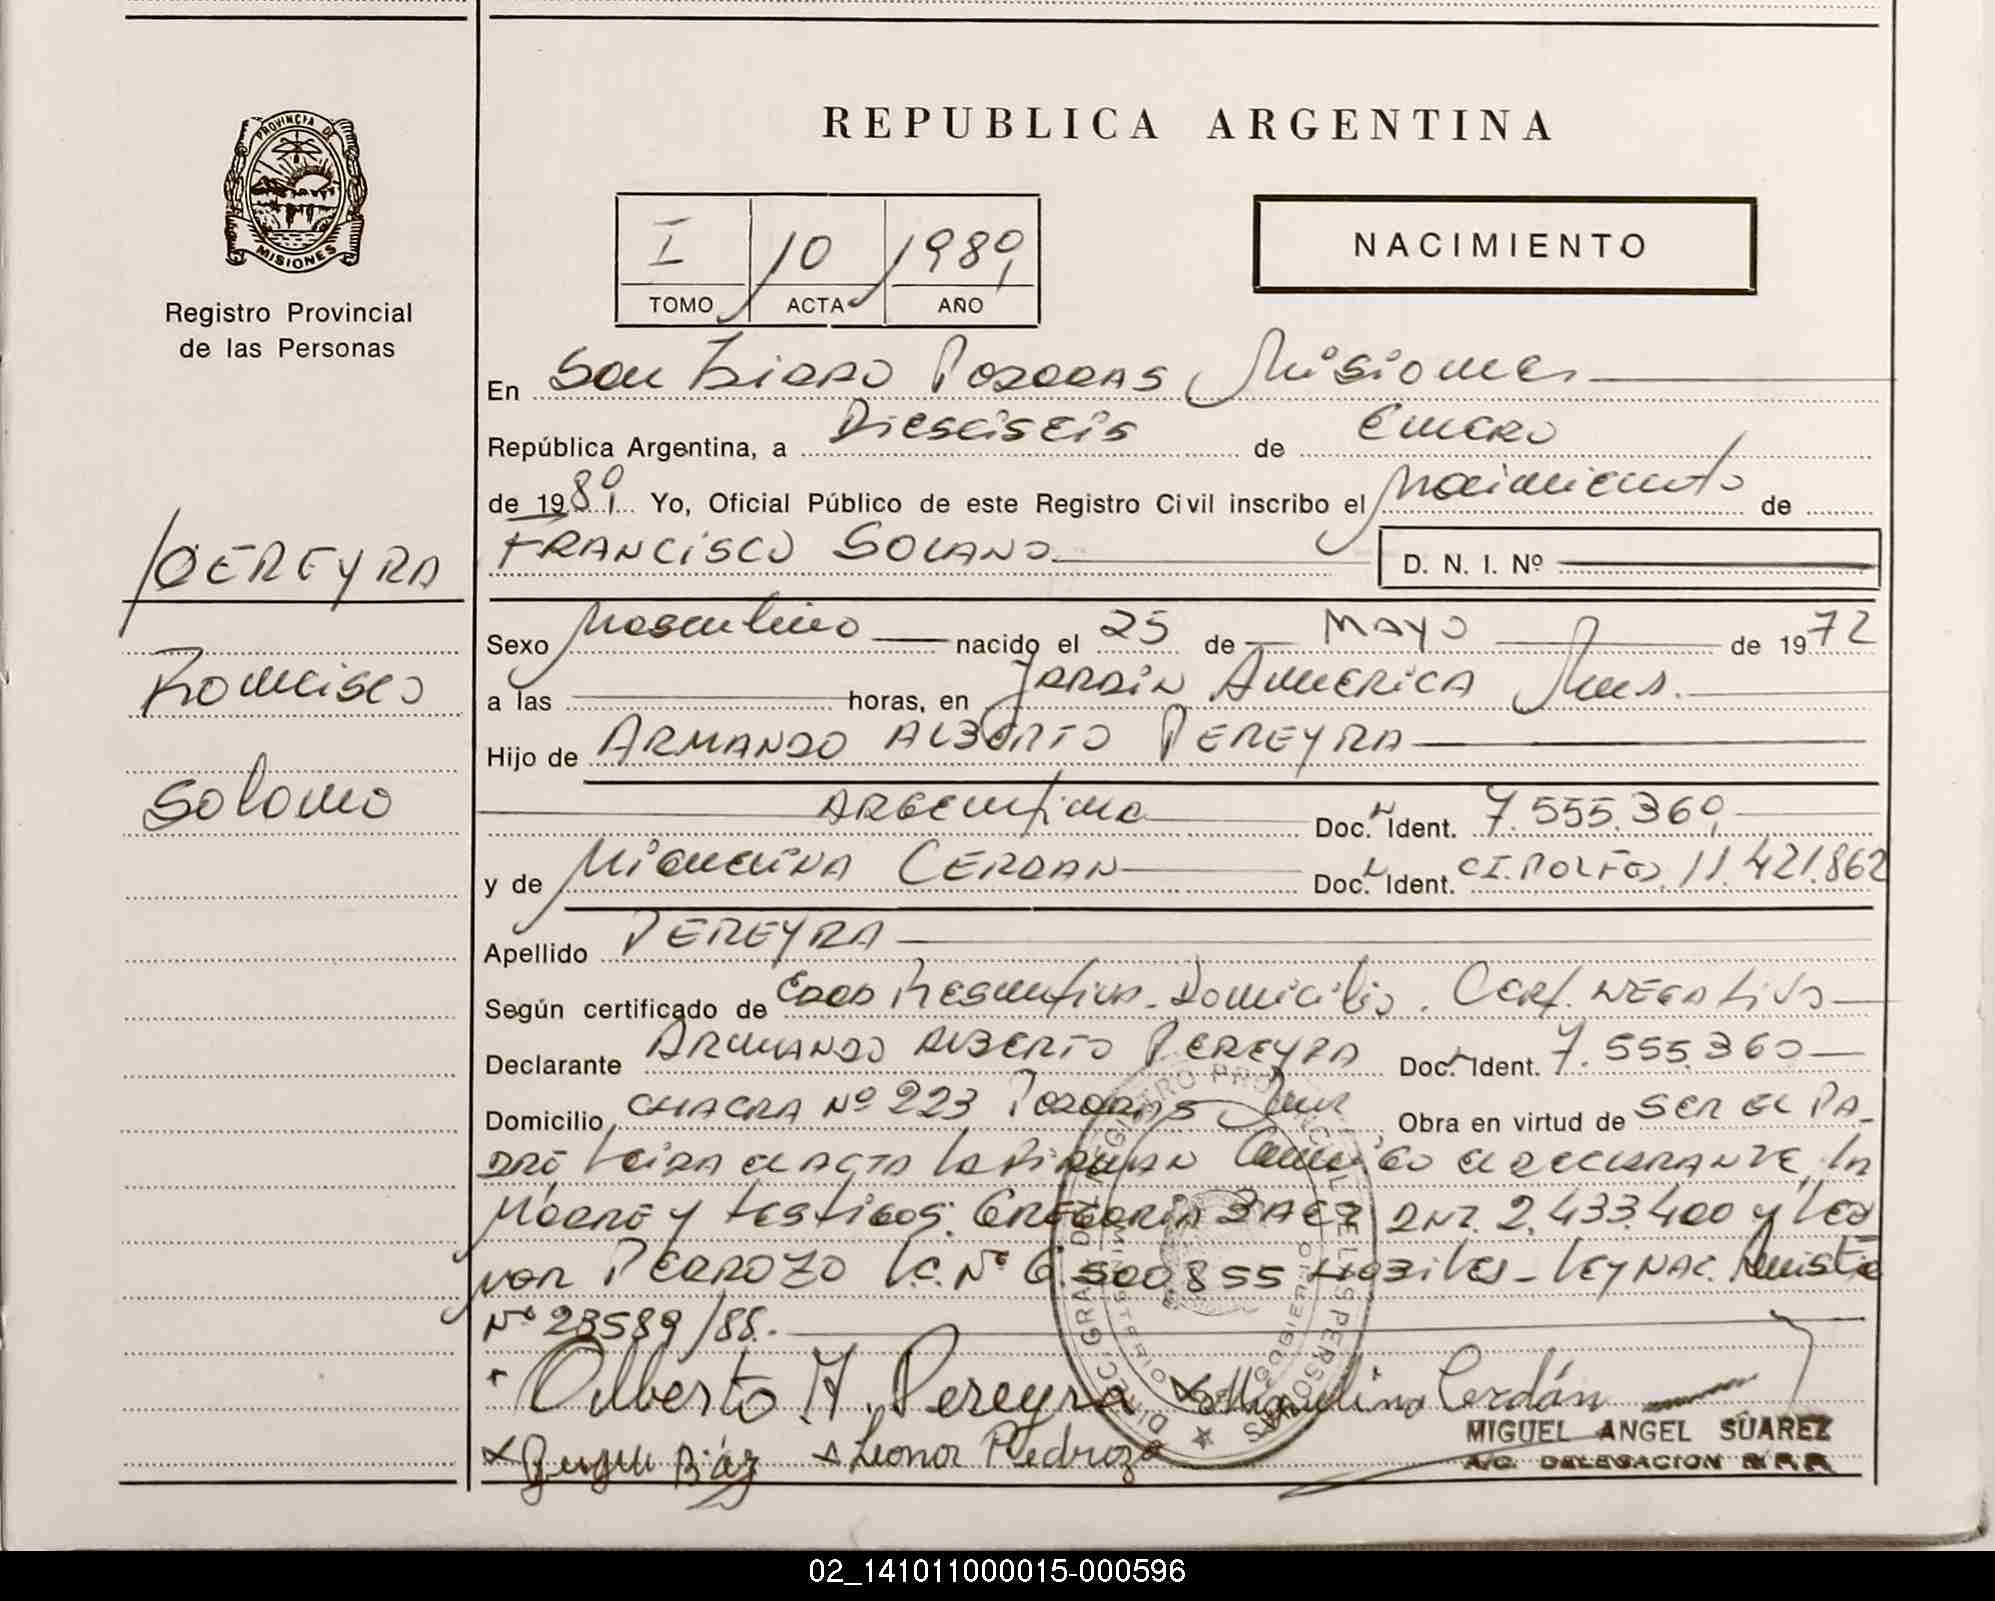 REPUBLICA ARGENTINA
PROVINCIA DE
MISIONES
Registro Provincial
de las Personas
I 10 1989
TOMO ACTA AÑO
NACIMIENTO
En San Isidro Posadas Misiones
República Argentina, a Dieseiseis de Enero
de 1989 Yo, Oficial Público de este Registro Civil inscribo el Nacimiento de
PEREYRA
FRANCISCO SOLANO
D. N. I. Nº
Sexo Masculino nacido el 25 de MAYO de 1972
Francisco
a las horas, en Jardin America Mns.
Hijo de ARMANDO ALBERTO PEREYRA
Solano
Argentina Doc. Ident. 7.555.360
y de Miguelina CERDAN Doc. Ident. C.I. POL. 11.421.862
Apellido PEREYRA
Según certificado de Edad Presuntiva - Domicilio. Cert. Negativo
Declarante ARMANDO ALBERTO PEREYRA Doc. Ident. 7.555.360
Domicilio CHACRA Nº 223 Posadas Mns Obra en virtud de SER EL PA-
DRE Leida el ACTA la Firman Conmigo el DECLARANTE, la
Madre y testigos: GREGORIA BAEZ DNI. 2.433.400 y Leo
nor PEDROZO L.C. Nº 6.500.855 Habiles - LEY NAC. Amnistia
Nº 23589/88.-
Alberto A. Pereyra x Miguelina Cerdán
x Báez x Leonor Pedrozo
MIGUEL ANGEL SUAREZ
A/C. DELEGACION
02_141011000015-000596